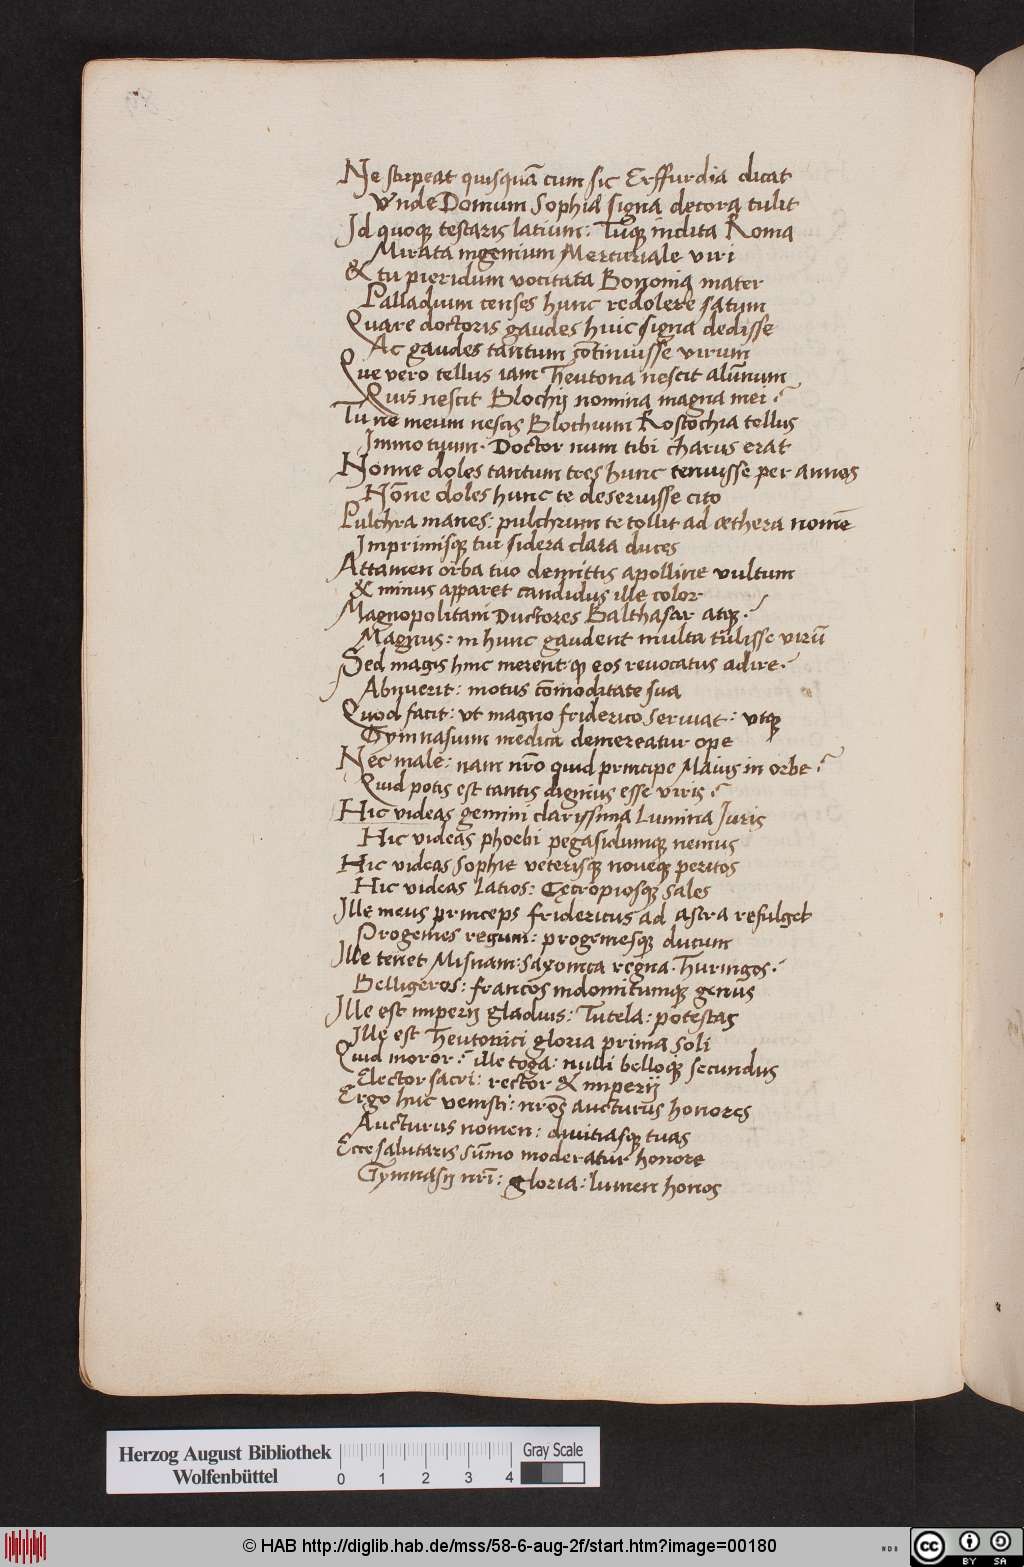 Ne stupeat quisquā cum sic Erffurdia dicat
Vnde Domum Sophiȩ signa decora tulit
Id quoque testaris latium: Tuque inclita Roma
Mirata ingenium Mercuriale viri
& tu pieridum vocitata Bononia mater
Palladium censes hunc redolere satum
Quare doctoris gaudes huic signa dedisse
Ac gaudes tantum cōtinuisse virum
Que vero tellus iam Theutona nescit alūnum
Quis nescit Blochij nomina magna mei?
Tu ne meum nescis Blochium Rostochia tellus
Immo tuum. Doctor num tibi charus erat
Nonne doles tantum tres hunc tenuisse per annos
Nōne doles hunc te deseruisse cito
Pulchra manes: pulchrum te tollit ad æthera nomē
Imprimisque tui sidera clara duces
Attamen orba tuo demittis apolline vultum
& minus apparet candidus ille color
Magnopolitani Ductores Balthasar atque.
Magnus: in hunc gaudent multa tulisse virū
Sed magis hinc merent que eos reuocatus adire.
Abnuerit: motus cōmoditate sua
Quod facit: vt magno friderico seruiat: vtque
Gymnasium medica demereatur ope
Nec male: nam nr̄o quid principe Maius in orbe?
Quid potis est tantis dignius esse viris?
Hic videas gemini clarissima Lumina Juris
Hic videas phoebi pegasidumque nemus
Hic videas sophie veterisque noueque peritos
Hic videas Latios: Cecropiosque sales
Ille meus princeps fridericus ad astra refulget
Progenies regum: progeniesque ducum
Ille tenet Misnam: Saxonica regna. Thuringos.
Belligeros: francos indomitumque genus
Ille est imperij gladius: Tutela: potestas
Ille est Theutonici gloria prima soli
Quid moror? ille toga: nulli belloque secundus
Elector sacri: rector & imperij
Ergo huc venisti: nr̄os aucturus honores
Aucturus nomen: diuitiasque tuas
Ecce salutaris sūmo moderatur honore
Gymnasij nr̄i: gloria: lumen honos
Herzog August Bibliothek
Wolfenbüttel
Gray Scale
0 1 2 3 4
© HAB http://diglib.hab.de/mss/58-6-aug-2f/start.htm?image=00180
WDB
cc BY SA